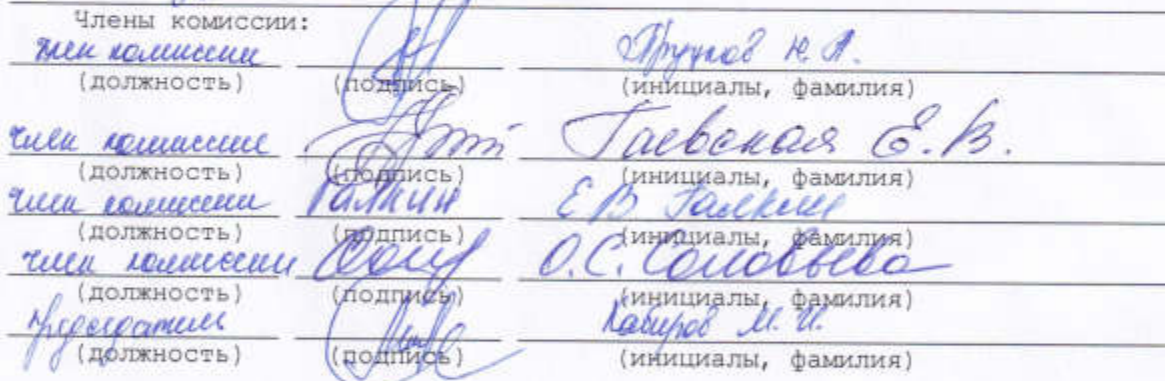 Члены комиссии:
член комиссии Н. А.
(должность) (подпись) (инициалы, фамилия)
член комиссии Гаевская Е. В.
(должность) (подпись) (инициалы, фамилия)
член комиссии Галкин Е В Галкин
(должность) (подпись) (инициалы, фамилия)
член комиссии О.С. Соловьева
(должность) (подпись) (инициалы, фамилия)
председатель Кабиров М. И.
(должность) (подпись) (инициалы, фамилия)